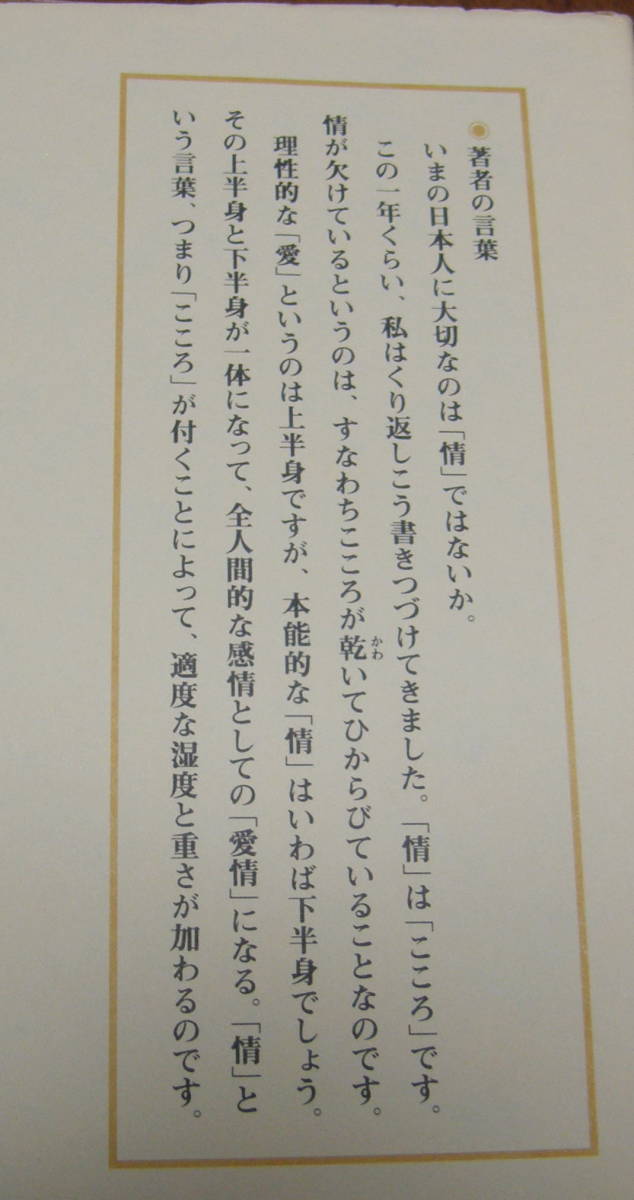 ◉著者の言葉
いまの日本人に大切なのは「情」ではないか。
この一年くらい、私はくり返しこう書きつづけてきました。「情」は「こころ」です。
情が欠けているというのは、すなわちこころが乾いてひからびていることなのです。
かわ
理性的な「愛」というのは上半身ですが、本能的な「情」はいわば下半身でしょう。
その上半身と下半身が一体になって、全人間的な感情としての「愛情」になる。「情」と
いう言葉、つまり「こころ」が付くことによって、適度な湿度と重さが加わるのです。